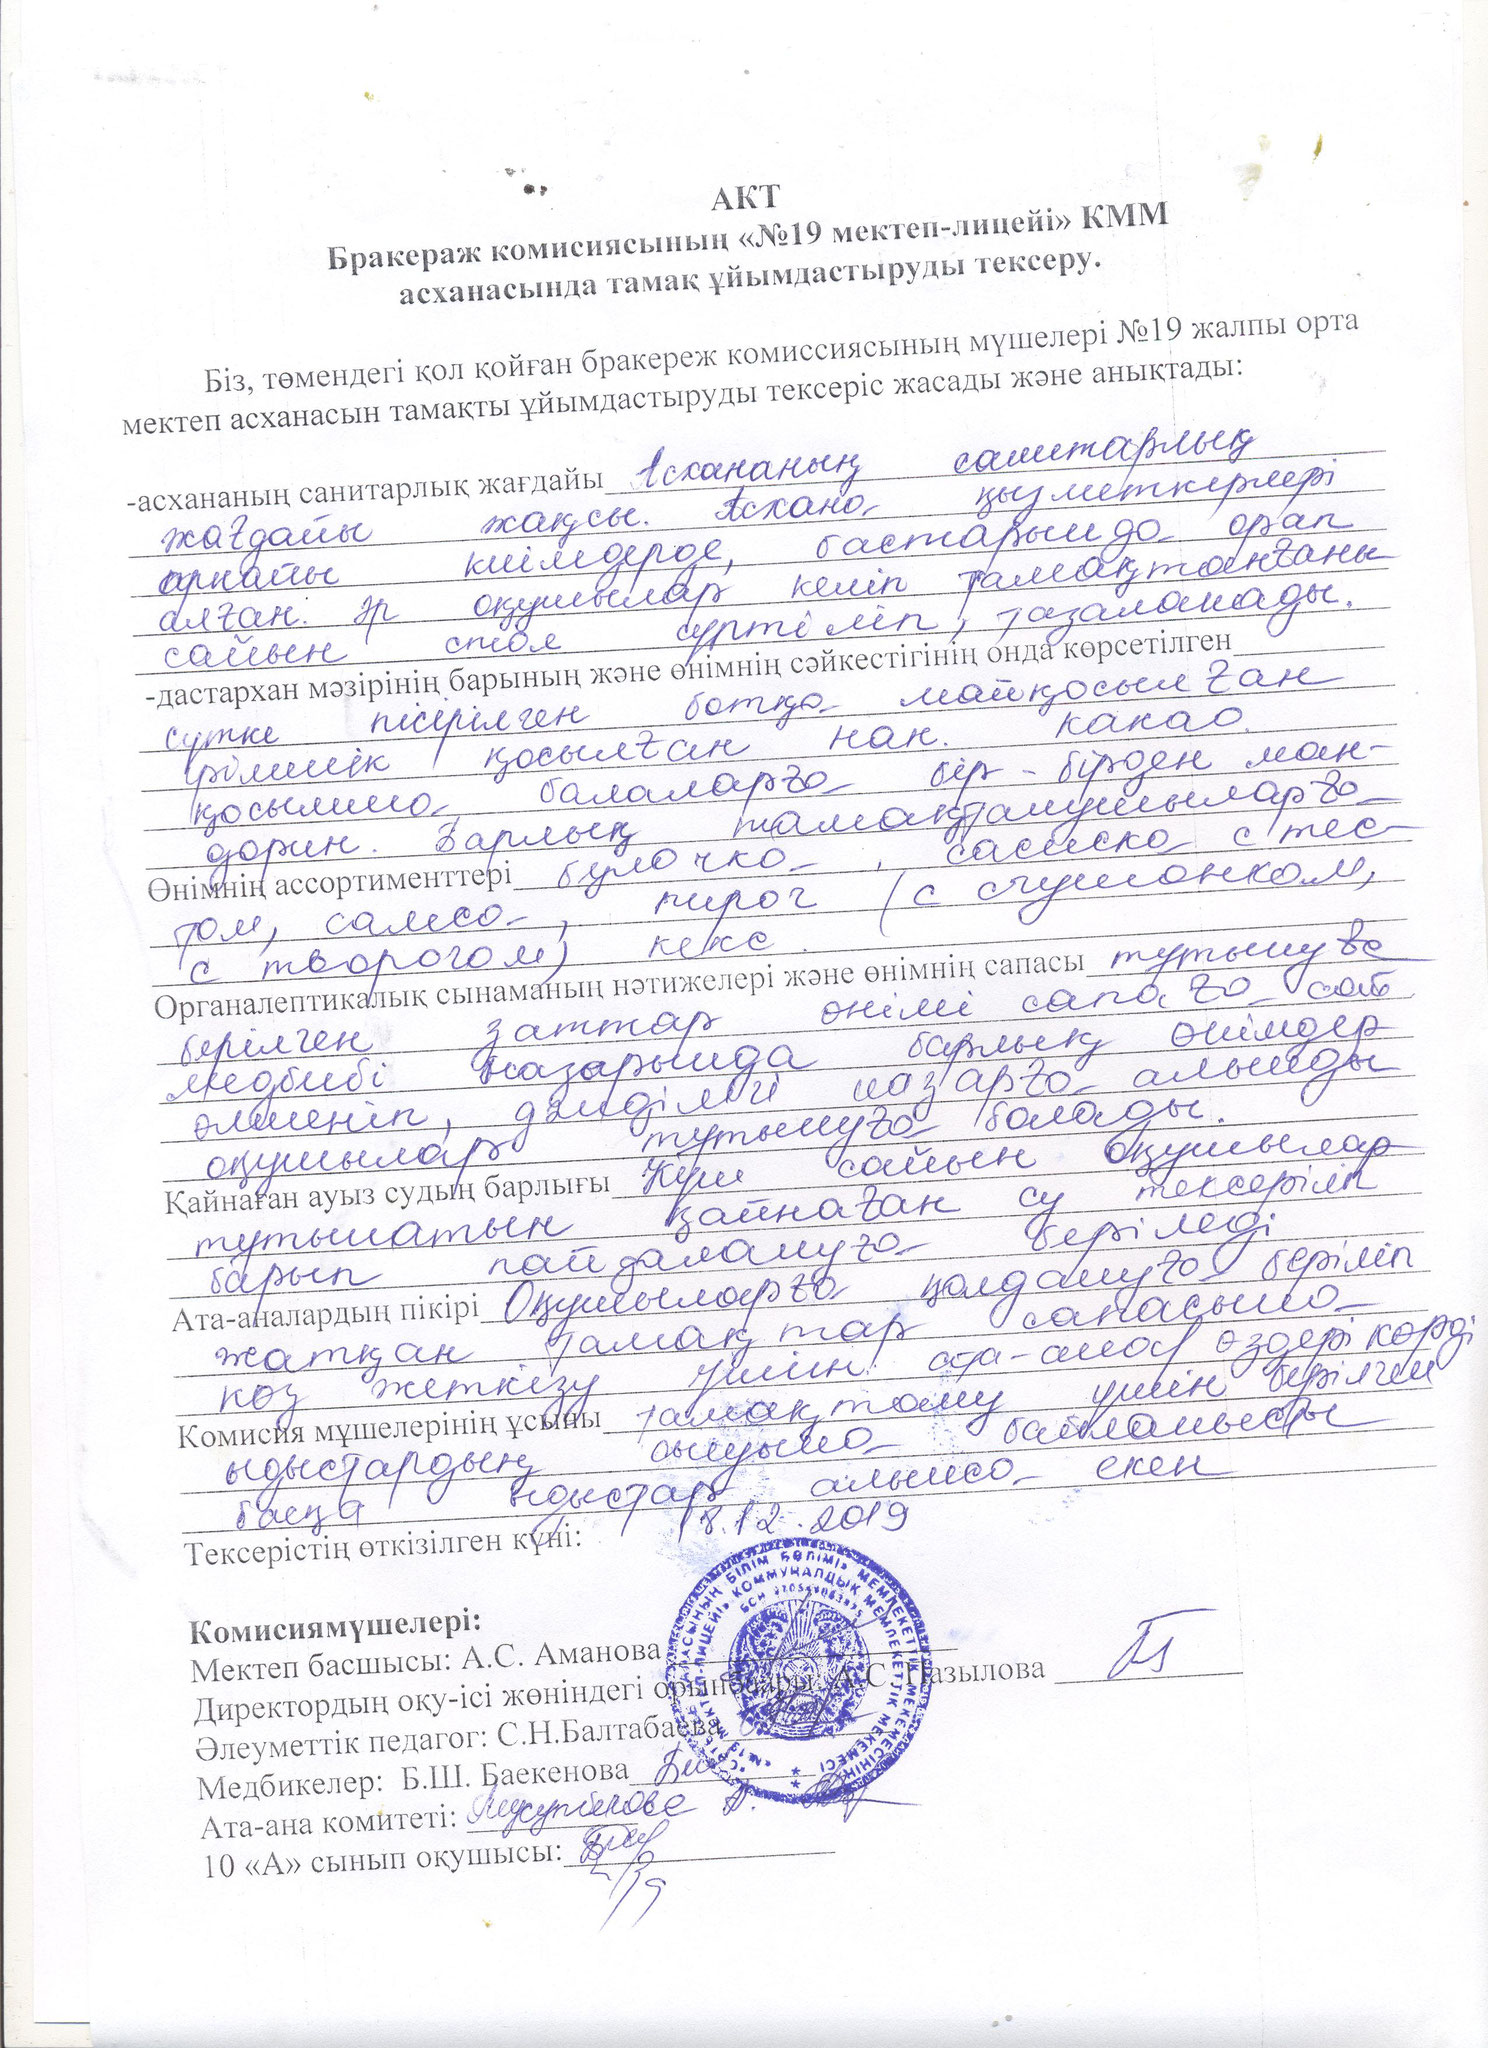 АКТ
Бракераж комисиясының «№19 мектеп-лицейі» КММ
асханасында тамақ ұйымдастыруды тексеру.
Біз, төмендегі қол қойған бракереж комиссиясының мүшелері №19 жалпы орта
мектеп асханасын тамақты ұйымдастыруды тексеріс жасады және анықтады:
-асхананың санитарлық жағдайы Асхананың санитарлық
жағдайы жақсы. Асхана қызметкерлері
арнайы киімдерде, бастарында орап
алған. Әр оқушылар келіп тамақтанғаны
сайын стол сүртіліп, тазаланады.
-дастархан мәзірінің барының және өнімнің сәйкестігінің онда көрсетілген
сүтке пісірілген ботқа майқосылған
ірімшік қосылған нан. какао.
қосымша балаларға бір-бірден ман-
дарин. Барлық тамақтанушыларға
Өнімнің ассортименттері булочка, сасиска с тес-
том, самса, пирог (с сгушонком,
с творогом) кекс.
Органалептикалық сынаманың нәтижелері және өнімнің сапасы тутынуға
берілген заттар өнімі сапаға сай
медбибі назарында барлық өнімдер
өлшеніп, дәмділігі назарға алынды
оқушылар тутынуға болады.
Қайнаған ауыз судың барлығы Күн сайын оқушылар
тутынатын қайнаған су тексеріліп
барып пайдалануға беріледі
Ата-аналардың пікірі Оқушыларға қолдануға беріліп
жатқан тамақтар сапасына
көз жеткізу үшін ата-ана өздері көрді
Комисия мүшелерінің ұсыны тамақтану үшін берілген
ыдыстардың сынуына байланысты
басқа ыдыстар алынса екен
Тексерістің өткізілген күні: 18.12.2019
Комисиямүшелері:
Мектеп басшысы: А.С. Аманова
Директордың оқу-ісі жөніндегі орынбасары: А.С. Назылова
Әлеуметтік педагог: С.Н.Балтабаева
Медбикелер: Б.Ш. Баекенова
Ата-ана комитеті: Мусупбекова
10 «А» сынып оқушысы: